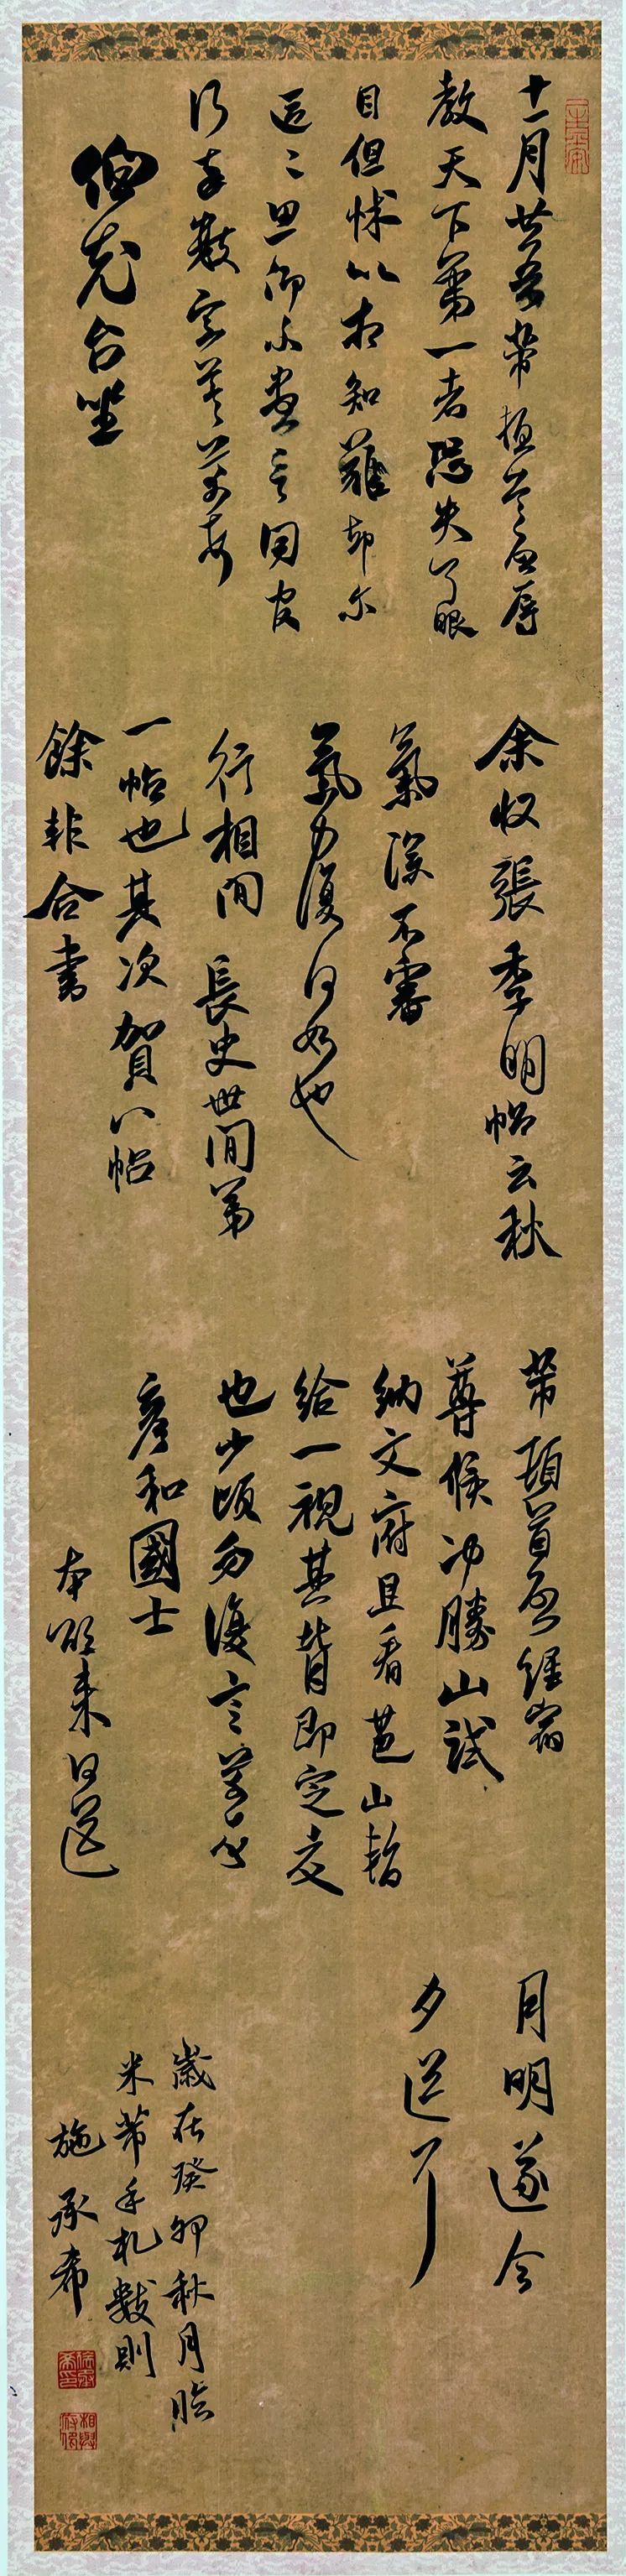 十一月廿五芾植芾衝辱
教天下第一者恐失了眼
目但怵以相知難却尔
區〻思仰不盡言同官
行奉數字草草芾頓首
伯充台坐
余收張季明帖云秋
氣深不審
氣力復何如也
行相間 長史世間第
一帖也其次賀八帖
餘非合書
芾頓首啓經宿
尊候冲勝山試
納文府且看芭山暫
給一視其背即定交
也少頃勿復言芾頓首
彥和國士
本欲來日送
月明遂今
夕送了
歲在癸卯秋月臨
米芾手札數則
施承希